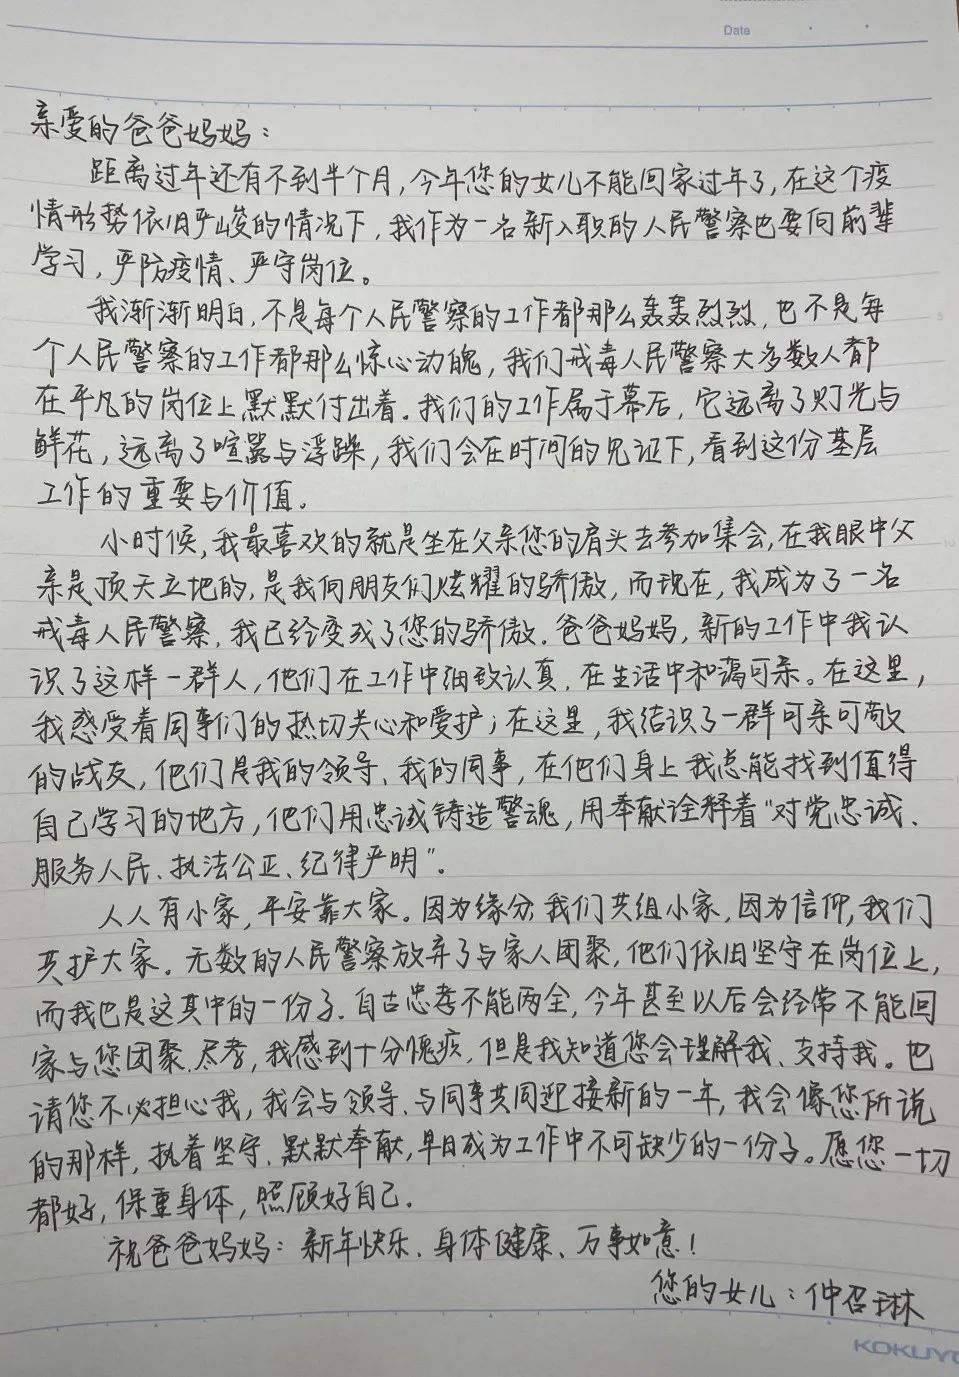 Date
亲爱的爸爸妈妈：
距离过年还有不到半个月，今年您的女儿不能回家过年了，在这个疫
情形势依旧严峻的情况下，我作为一名新入职的人民警察也要向前辈
学习，严防疫情、严守岗位。
我渐渐明白，不是每个人民警察的工作都那么轰轰烈烈，也不是每
个人民警察的工作都那么惊心动魄，我们戒毒人民警察大多数人都
在平凡的岗位上默默付出着。我们的工作属于幕后，它远离了灯光与
鲜花，远离了喧嚣与浮躁，我们会在时间的见证下，看到这份基层
工作的重要与价值。
小时候，我最喜欢的就是坐在父亲您的肩头去参加集会，在我眼中父
亲是顶天立地的，是我向朋友们炫耀的骄傲，而现在，我成为了一名
戒毒人民警察，我已经变成了您的骄傲。爸爸妈妈，新的工作中我认
识了这样一群人，他们在工作中细致认真，在生活中和蔼可亲。在这里，
我感受着同事们的热切关心和爱护；在这里，我结识了一群可亲可敬
的战友，他们是我的领导、我的同事，在他们身上我总能找到值得
自己学习的地方，他们用忠诚铸造警魂，用奉献诠释着“对党忠诚、
服务人民、执法公正、纪律严明”。
人人有小家，平安靠大家。因为缘分，我们共组小家，因为信仰，我们
共护大家。无数的人民警察放弃了与家人团聚，他们依旧坚守在岗位上，
而我也是这其中的一份子。自古忠孝不能两全，今年甚至以后会经常不能回
家与您团聚、尽孝，我感到十分愧疚，但是我知道您会理解我、支持我。也
请您不必担心我，我会与领导、与同事共同迎接新的一年，我会像您所说
的那样，执着坚守、默默奉献，早日成为工作中不可缺少的一份子。愿您一切
都好，保重身体，照顾好自己。
祝爸爸妈妈：新年快乐、身体健康、万事如意！
您的女儿：仲召琳
KOKUYO